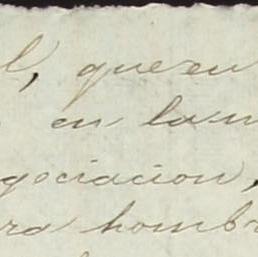 l, que en
en la m
gociacion,
ra hombr